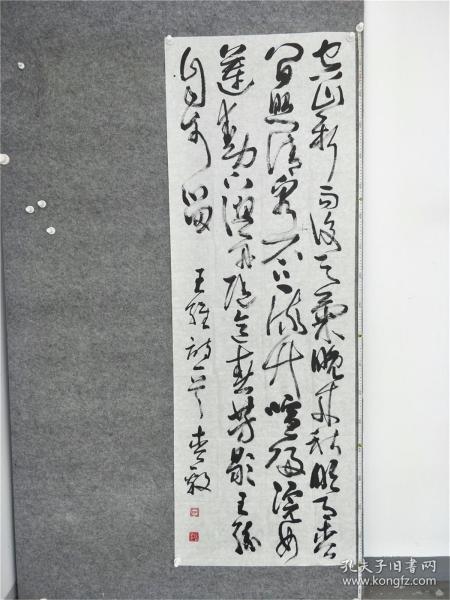 空山新雨後天氣晚来秋明月松
間照清泉石上流竹喧歸浣女
蓮動下漁舟隨意春芳歇王孫
自可留
王維詩一首
孔夫子旧书网
www.kongfz.com